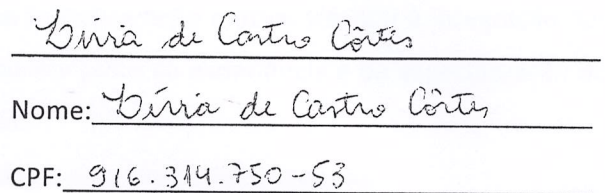 Lívia de Castro Côrtes
Nome: Lívia de Castro Côrtes
CPF: 916.314.750-53